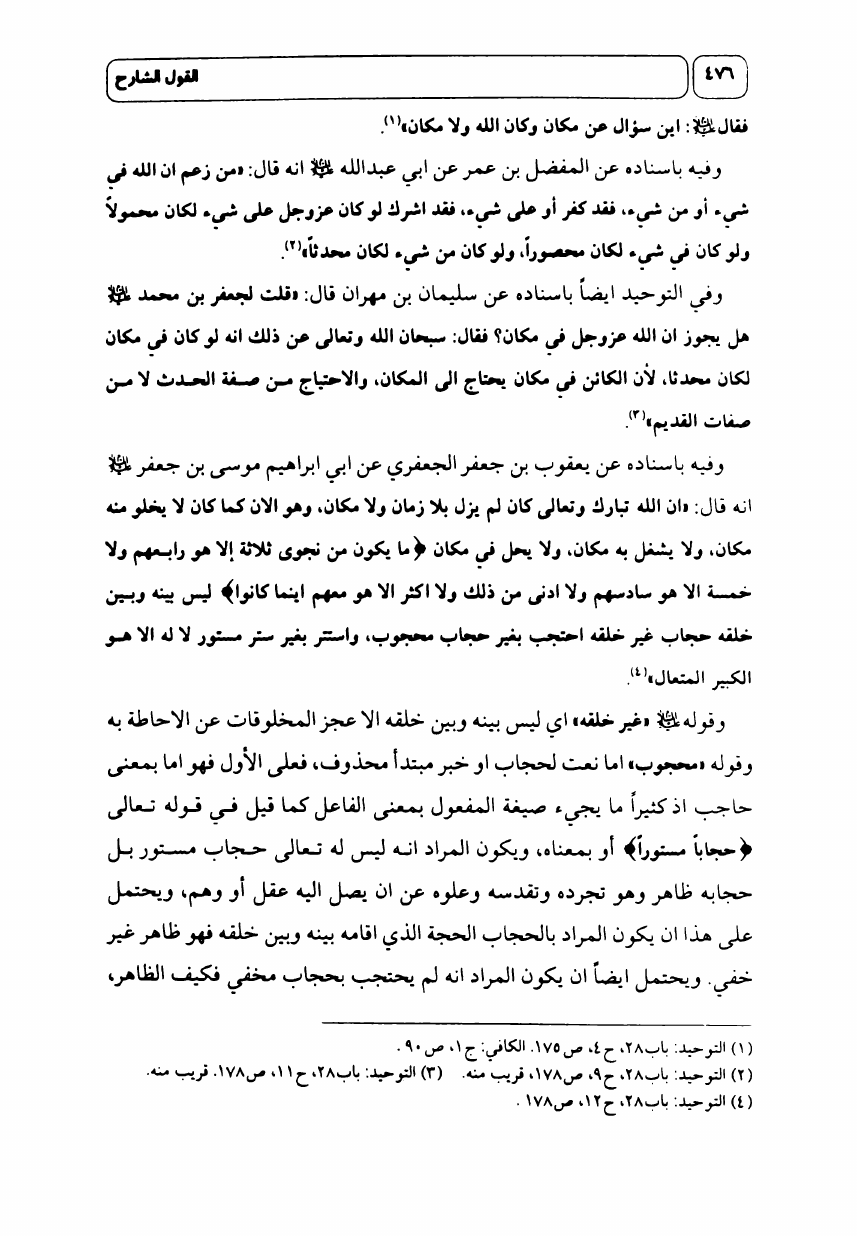 ٤٧٦
القول الشارح
فقال عليه السلام: اين سؤال عن مكان وكان الله ولا مكان»(١).
وفيه باسناده عن المفضل بن عمر عن ابي عبدالله عليه السلام انه قال: «من زعم ان الله في
شيء أو من شيء، فقد كفر أو على شيء، فقد اشرك لو كان عزوجل على شيء لكان محمولاً
ولو كان في شيء لكان محصوراً، ولو كان من شيء لكان محدثاً»(٢).
وفي التوحيد ايضاً باسناده عن سليمان بن مهران قال: «قلت لجعفر بن محمد عليه السلام
هل يجوز ان الله عزوجل في مكان؟ فقال: سبحان الله وتعالى عن ذلك انه لو كان في مكان
لكان محدثا، لأن الكائن في مكان يحتاج الى المكان، والاحتياج من صفة الحدث لا من
صفات القديم»(٣).
وفيه باسناده عن يعقوب بن جعفر الجعفري عن ابي ابراهيم موسى بن جعفر عليه السلام
انه قال: «ان الله تبارك وتعالى كان لم يزل بلا زمان ولا مكان، وهو الان كما كان لا يخلو منه
مكان، ولا يشغل به مكان، ولا يحل في مكان ﴿ما يكون من نجوى ثلاثة إلا هو رابعهم ولا
خمسة الا هو سادسهم ولا ادنى من ذلك ولا اكثر الا هو معهم اينما كانوا﴾ ليس بينه وبين
خلقه حجاب غير خلقه احتجب بغير حجاب محجوب، واستتر بغير ستر مستور لا له الا هو
الكبير المتعال»(٤).
وقوله عليه السلام «غير خلقه» اي ليس بينه وبين خلقه الا عجز المخلوقات عن الاحاطة به
وقوله «محجوب» اما نعت لحجاب او خبر مبتدأ محذوف، فعلى الأول فهو اما بمعنى
حاجب اذ كثيراً ما يجيء صيغة المفعول بمعنى الفاعل كما قيل في قوله تعالى
﴿حجاباً مستوراً﴾ أو بمعناه، ويكون المراد انه ليس له تعالى حجاب مستور بل
حجابه ظاهر وهو تجرده وتقدسه وعلوه عن ان يصل اليه عقل أو وهم، ويحتمل
على هذا ان يكون المراد بالحجاب الحجة الذي اقامه بينه وبين خلقه فهو ظاهر غير
خفي. ويحتمل ايضاً ان يكون المراد انه لم يحتجب بحجاب مخفي فكيف الظاهر،
(١) التوحيد: باب٢٨، ح٤، ص١٧٥. الكافي: ج١، ص٩٠.
(٢) التوحيد: باب٢٨، ح٩، ص١٧٨، قريب منه. (٣) التوحيد: باب٢٨، ح١١، ص١٧٨. قريب منه.
(٤) التوحيد: باب٢٨، ح١٢، ص١٧٨.